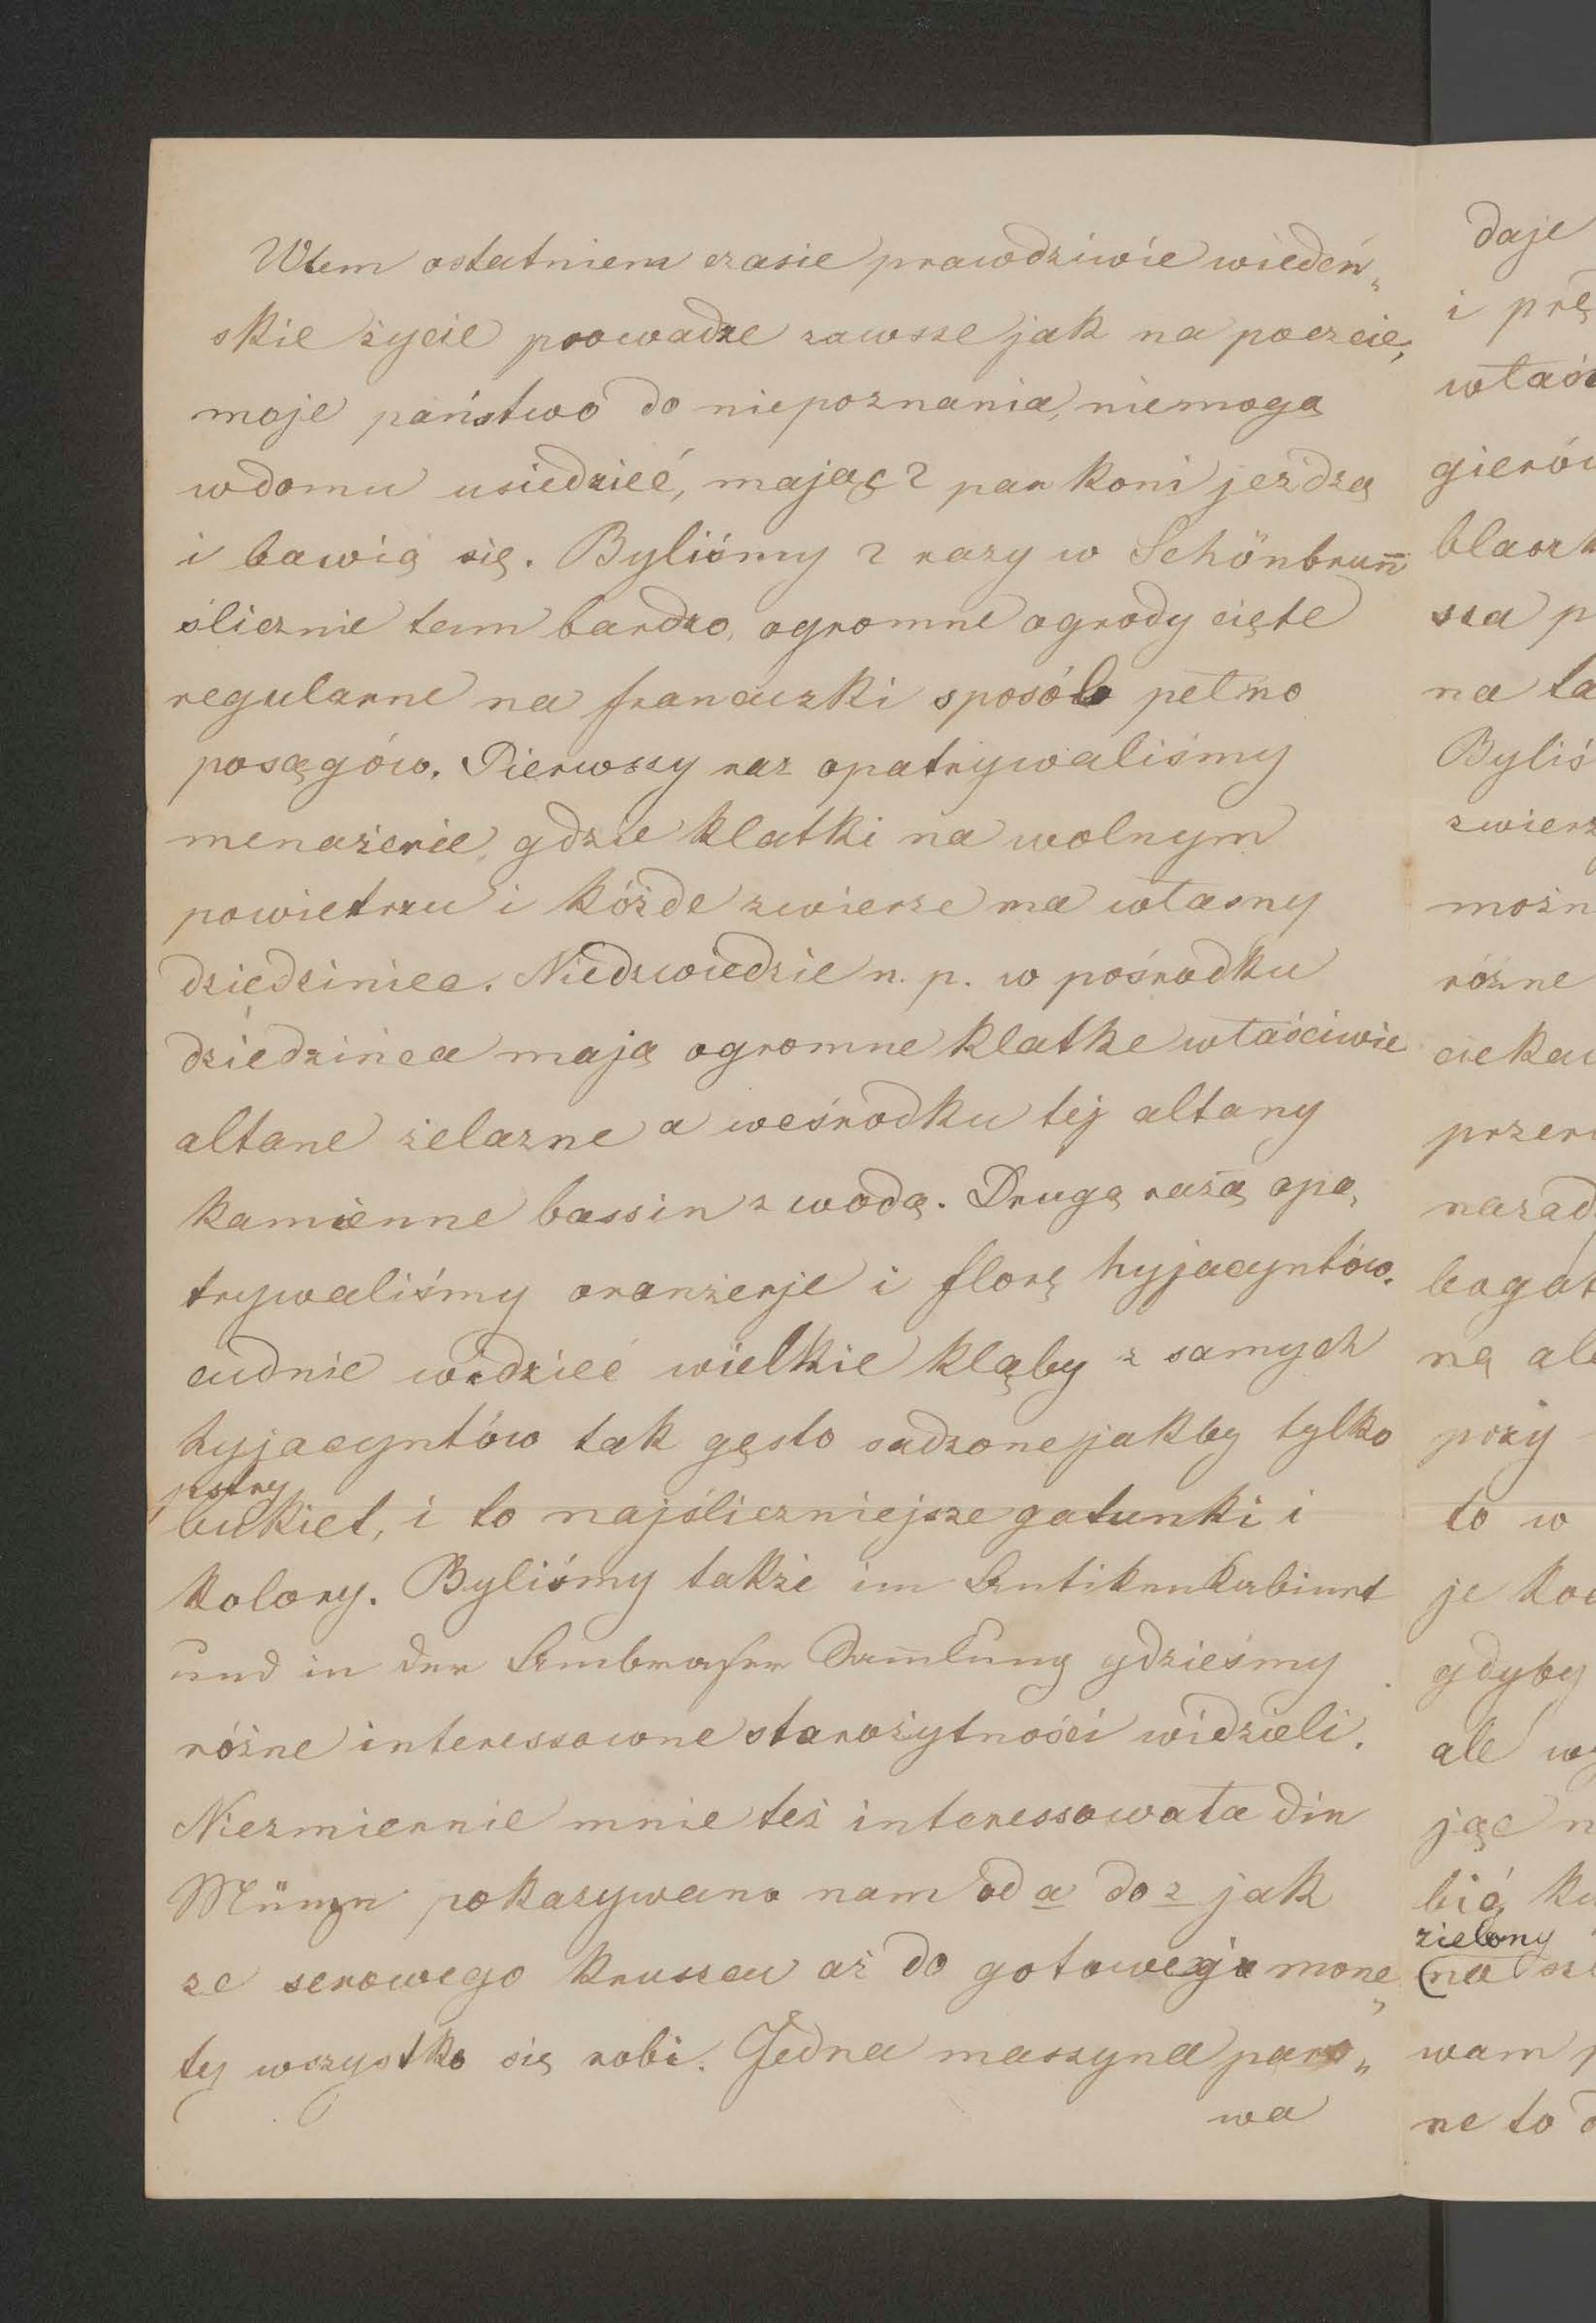 Wtem ostatniem czasie prawdziwie wiedeń„
skie życie prowadze zawsze jak na poczcie,
moje państwo do niepoznania, niemogą
wdomu usiedzieć, mając 2 par koni jeżdzą
i bawią się. Byliśmy 2 razy w Schönbrun̄
ślicznie tam bardzo, ogromne ogrody cięte
regularne na francuzki sposób pełno
posągów. Pierwszy raz opatrywaliśmy
menażerie gdzie klatki na wolnym
powietrzu i kóżde zwierze ma własny
dziedziniec. Niedzwiedzie n. p. w pośrodku
dziedzińca mają ogromne klatke właściwie
altane żelazne a weśrodku tej altany
kamienne bassin z wodą. Drugą razą opa„
trywaliśmy oranżerje i florę hyjacyntów.
cudnie widzieć wielkie kląby z samych
hyjacyntów tak gęsto sadzone jakby tylko
pstry
bukiet, i to najśliczniejsze gatunki i
kolory. Byliśmy także im Antikenkabinet
und in der Ambraser Sam̄lung gdzieśmy
różne interessowne starożytności widzieli.
Niezmiernie mnie też interessowała die
Münze pokazywano nam od a do z jak
ze serowego kruszcu aż do gotowego mone„
ty wszystko się robi. Jedna maszyna paro„
wa
daje
i prę
właś
gierów
blaszk
sza p
na ta
Byliś
zwierz
możn
różne
cieka
przer
nazad
bogat
ną ale
przy
to w
je ko
gdyby
ale wy
jąc n
bić, ku
zielony
(na
wam p
ne to d